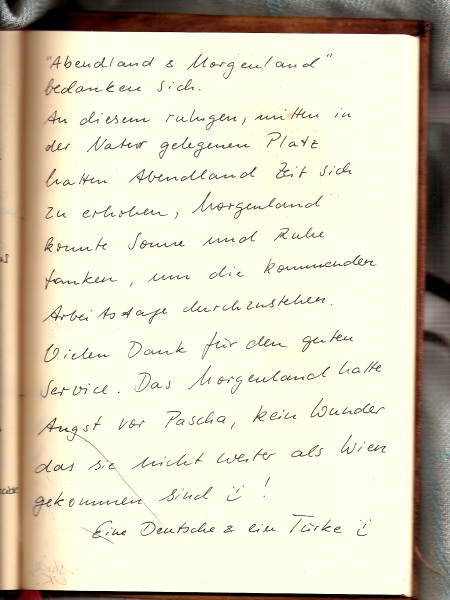 "Abendland & Morgenland"
bedanken sich.
An diesem ruhigen, mitten in
der Natur gelegenen Platz
hatten Abendland Zeit sich
zu erholen, Morgenland
konnte Sonne und Ruhe
tanken, um die kommenden
Arbeitstage durchzustehen.
Vielen Dank für den guten
Service. Das Morgenland hatte
Angst vor Pascha, kein Wunder
das sie nicht weiter als Wien
gekommen sind !
Eine Deutsche & ein Türke